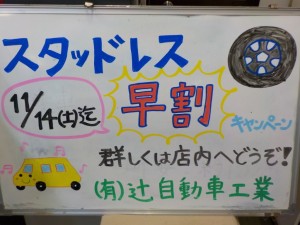 スタッドレス
11/14(土)迄
早割
キャンペーン
群しくは店内へどうぞ!
(有)辻自動車工業